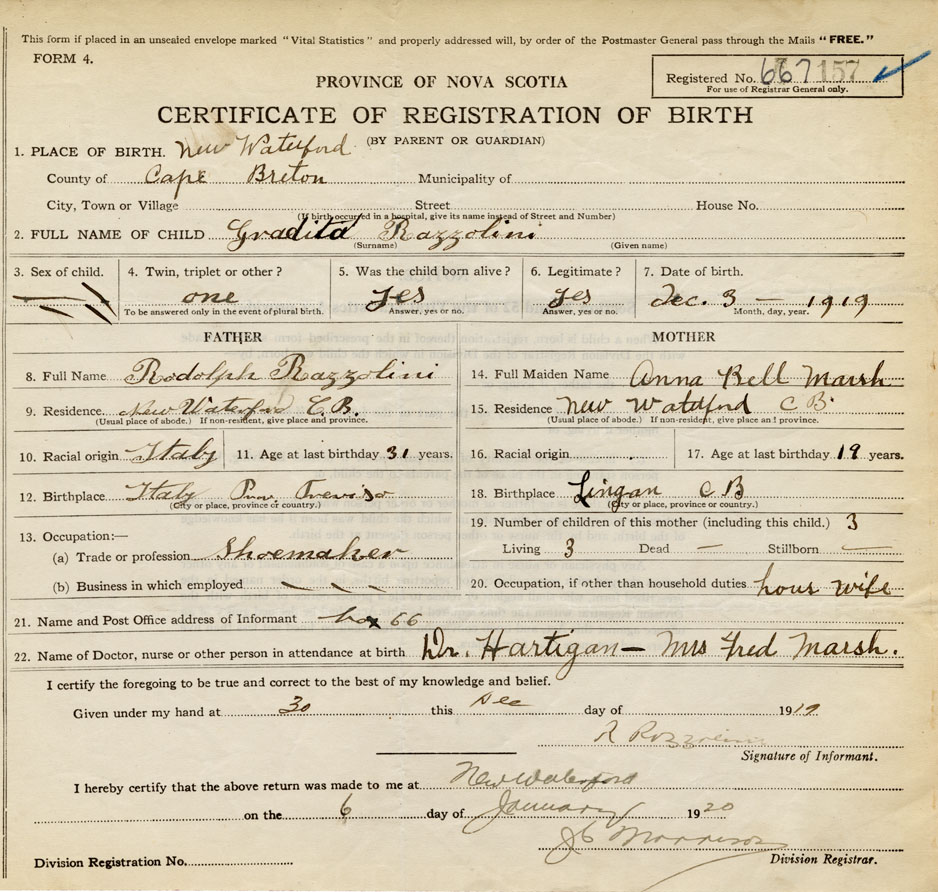 This form if placed in an unsealed envelope marked "Vital Statistics" and properly addressed will, by order of the Postmaster General pass through the Mails "FREE."
FORM 4.
Registered No. 667 157
For use of Registrar General only.
PROVINCE OF NOVA SCOTIA
CERTIFICATE OF REGISTRATION OF BIRTH
(BY PARENT OR GUARDIAN)
1. PLACE OF BIRTH. New Waterford
County of Cape Breton Municipality of
City, Town or Village Street House No.
(If birth occurred in a hospital, give its name instead of Street and Number)
2. FULL NAME OF CHILD Gradita Razzolini
(Surname) (Given name)
3. Sex of child. 4. Twin, triplet or other? 5. Was the child born alive? 6. Legitimate? 7. Date of birth.
one yes yes Dec. 3 — 1919
To be answered only in the event of plural birth. Answer, yes or no. Answer, yes or no. Month, day, year.
FATHER MOTHER
8. Full Name Rodolph Razzolini 14. Full Maiden Name Anna Bell Marsh
9. Residence. New Waterford C.B. 15. Residence New Waterford C B.
(Usual place of abode.) If non-resident, give place and province. (Usual place of abode.) If non-resident, give place and province.
10. Racial origin Italy 11. Age at last birthday 31 years. 16. Racial origin 17. Age at last birthday 19 years.
12. Birthplace Italy Prov. Treviso 18. Birthplace Lingan C B
(City or place, province or country.) (City or place, province or country.)
13. Occupation:— 19. Number of children of this mother (including this child.) 3
(a) Trade or profession Shoemaker Living 3 Dead — Stillborn —
(b) Business in which employed 20. Occupation, if other than household duties. hous wife
21. Name and Post Office address of Informant box 66
22. Name of Doctor, nurse or other person in attendance at birth Dr. Hartigan — Mrs Fred Marsh.
I certify the foregoing to be true and correct to the best of my knowledge and belief.
Given under my hand at 30 this Dec day of 1919
R Razzolini
Signature of Informant.
I hereby certify that the above return was made to me at New Waterford
on the 6 day of January 1920
Morrison
Division Registration No. Division Registrar.